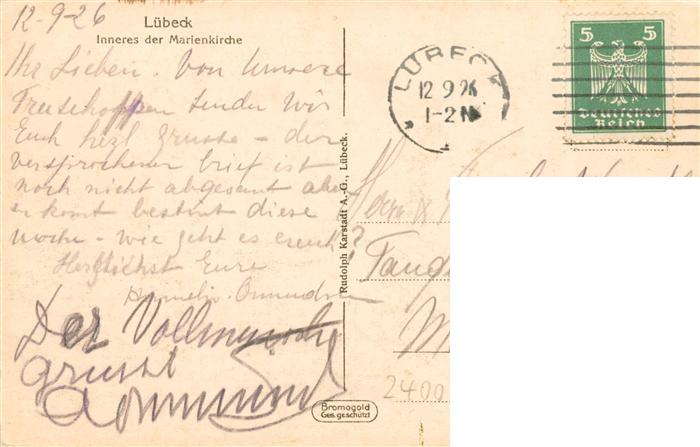 12-9-26
Lübeck
Inneres der Marienkirche
Ihr Lieben. Von unsere
senden wir
Euch herzl grusse - der
versprochener brief ist
noch nicht abgesant aber
er komt bestimt diese
woche - wie geht es euch?
Herzlichst Eure
Der Vollmensch
grusst
Rudolph Karstadt A.-G., Lübeck.
Bromogold
Ges. geschützt
LÜBECK
12 9 26
1-2 N
5 5
Deutsches
Reich
Herrn
2400